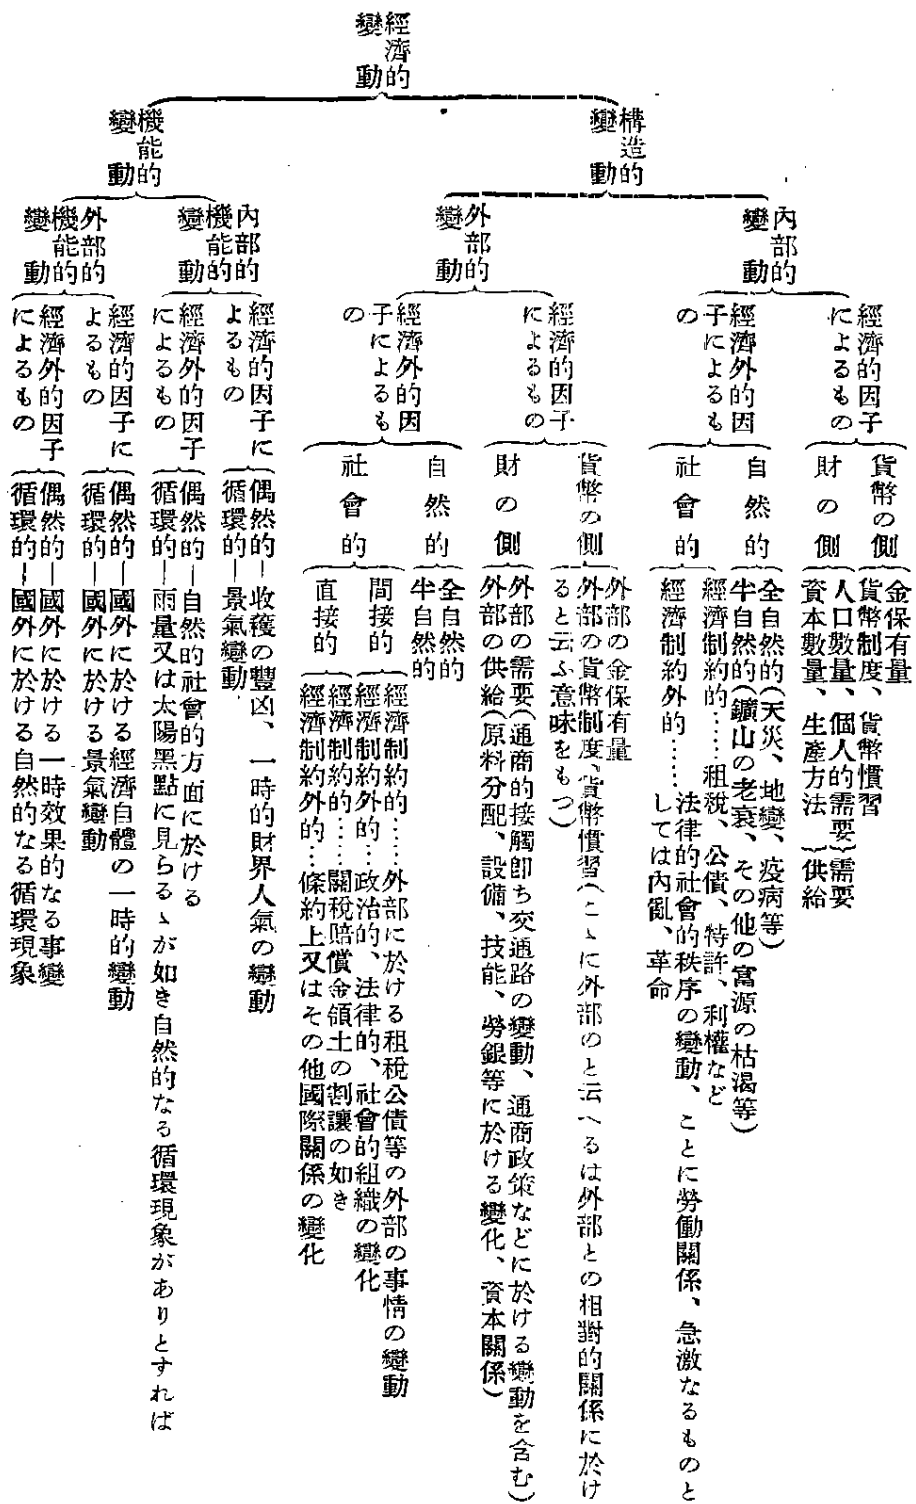 經濟的
變動
構造的
變動
內部的
變動
經濟的因子
によるもの
貨幣の側
金保有量
貨幣制度、貨幣慣習
財の側
人口數量、個人的需要}需要
資本數量、生產方法}供給
經濟外的因
子によるも
の
自然的
全自然的(天災、地變、疫病等)
半自然的(鑛山の老衰、その他の富源の枯渴等)
社會的
經濟制約的……租稅、公債、特許、利權など
經濟制約外的……法律的社會的秩序の變動、ことに勞働關係、急激なるものと
しては內亂、革命
外部的
變動
經濟的因子
によるもの
貨幣の側
外部の金保有量
外部の貨幣制度、貨幣慣習(こゝに外部のと云へるは外部との相對的關係に於け
ると云ふ意味をもつ)
財の側
外部の需要(通商的接觸卽ち交通路の變動、通商政策などに於ける變動を含む)
外部の供給(原料分配、設備、技能、勞銀等に於ける變化、資本關係)
經濟外的因
子によるも
の
自然的
全自然的
半自然的
社會的
間接的
經濟制約的……外部に於ける租稅公債等の外部の事情の變動
經濟制約外的…政治的、法律的、社會的組織の變化
直接的
經濟制約的……關稅賠償金領土の割讓の如き
經濟制約外的…條約上又はその他國際關係の變化
機能的
變動
內部的
機能的
變動
經濟的因子に
よるもの
偶然的―收穫の豐凶、一時的財界人氣の變動
循環的―景氣變動
經濟外的因子
によるもの
偶然的―自然的社會的方面に於ける
循環的―雨量又は太陽黑點に見らるゝが如き自然的なる循環現象がありとすれば
外部的
機能的
變動
經濟的因子に
よるもの
偶然的―國外に於ける經濟自體の一時的變動
循環的―國外に於ける景氣變動
經濟外的因子
によるもの
偶然的―國外に於ける一時效果的なる事變
循環的―國外に於ける自然的なる循環現象